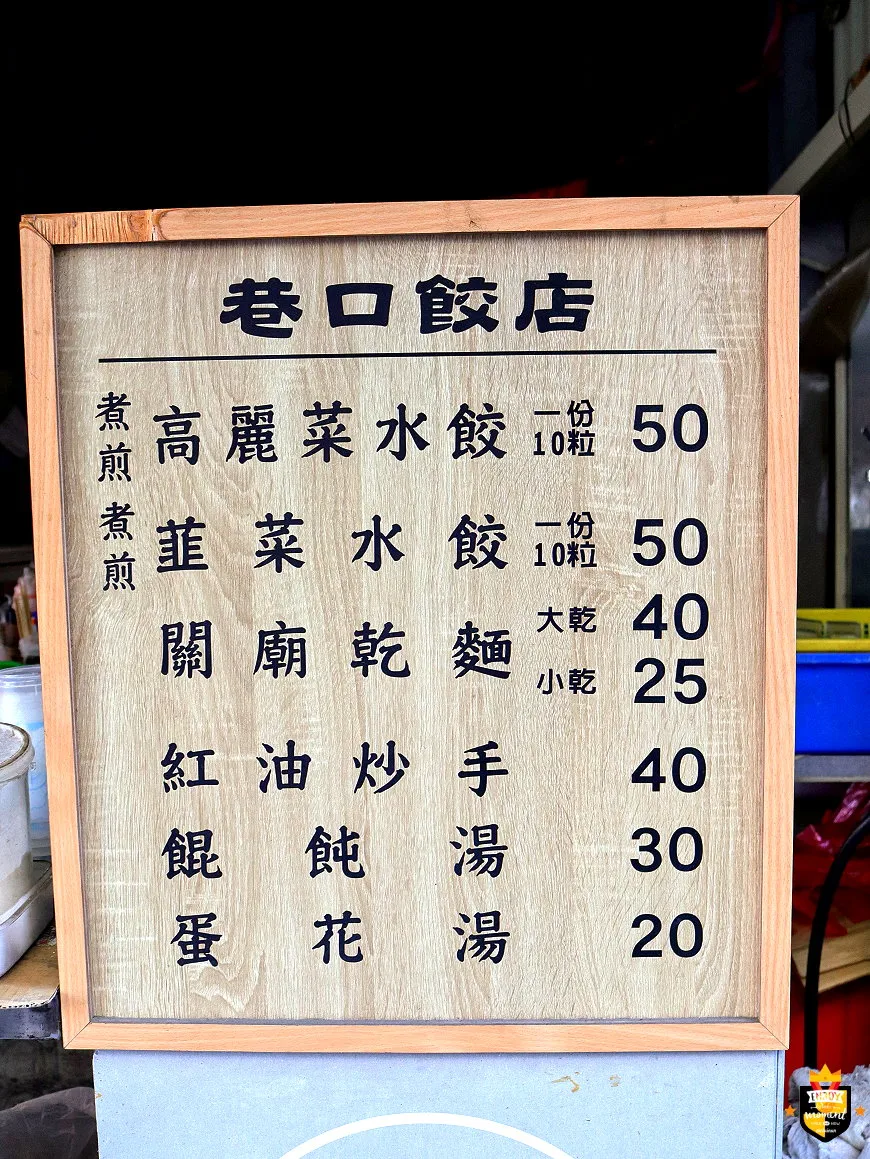 巷口餃店
煮煎 高麗菜水餃 一份10粒 50
煮煎 韮菜水餃 一份10粒 50
關廟乾麵 大乾 40
小乾 25
紅油炒手 40
餛飩湯 30
蛋花湯 20
ENJOY
moment